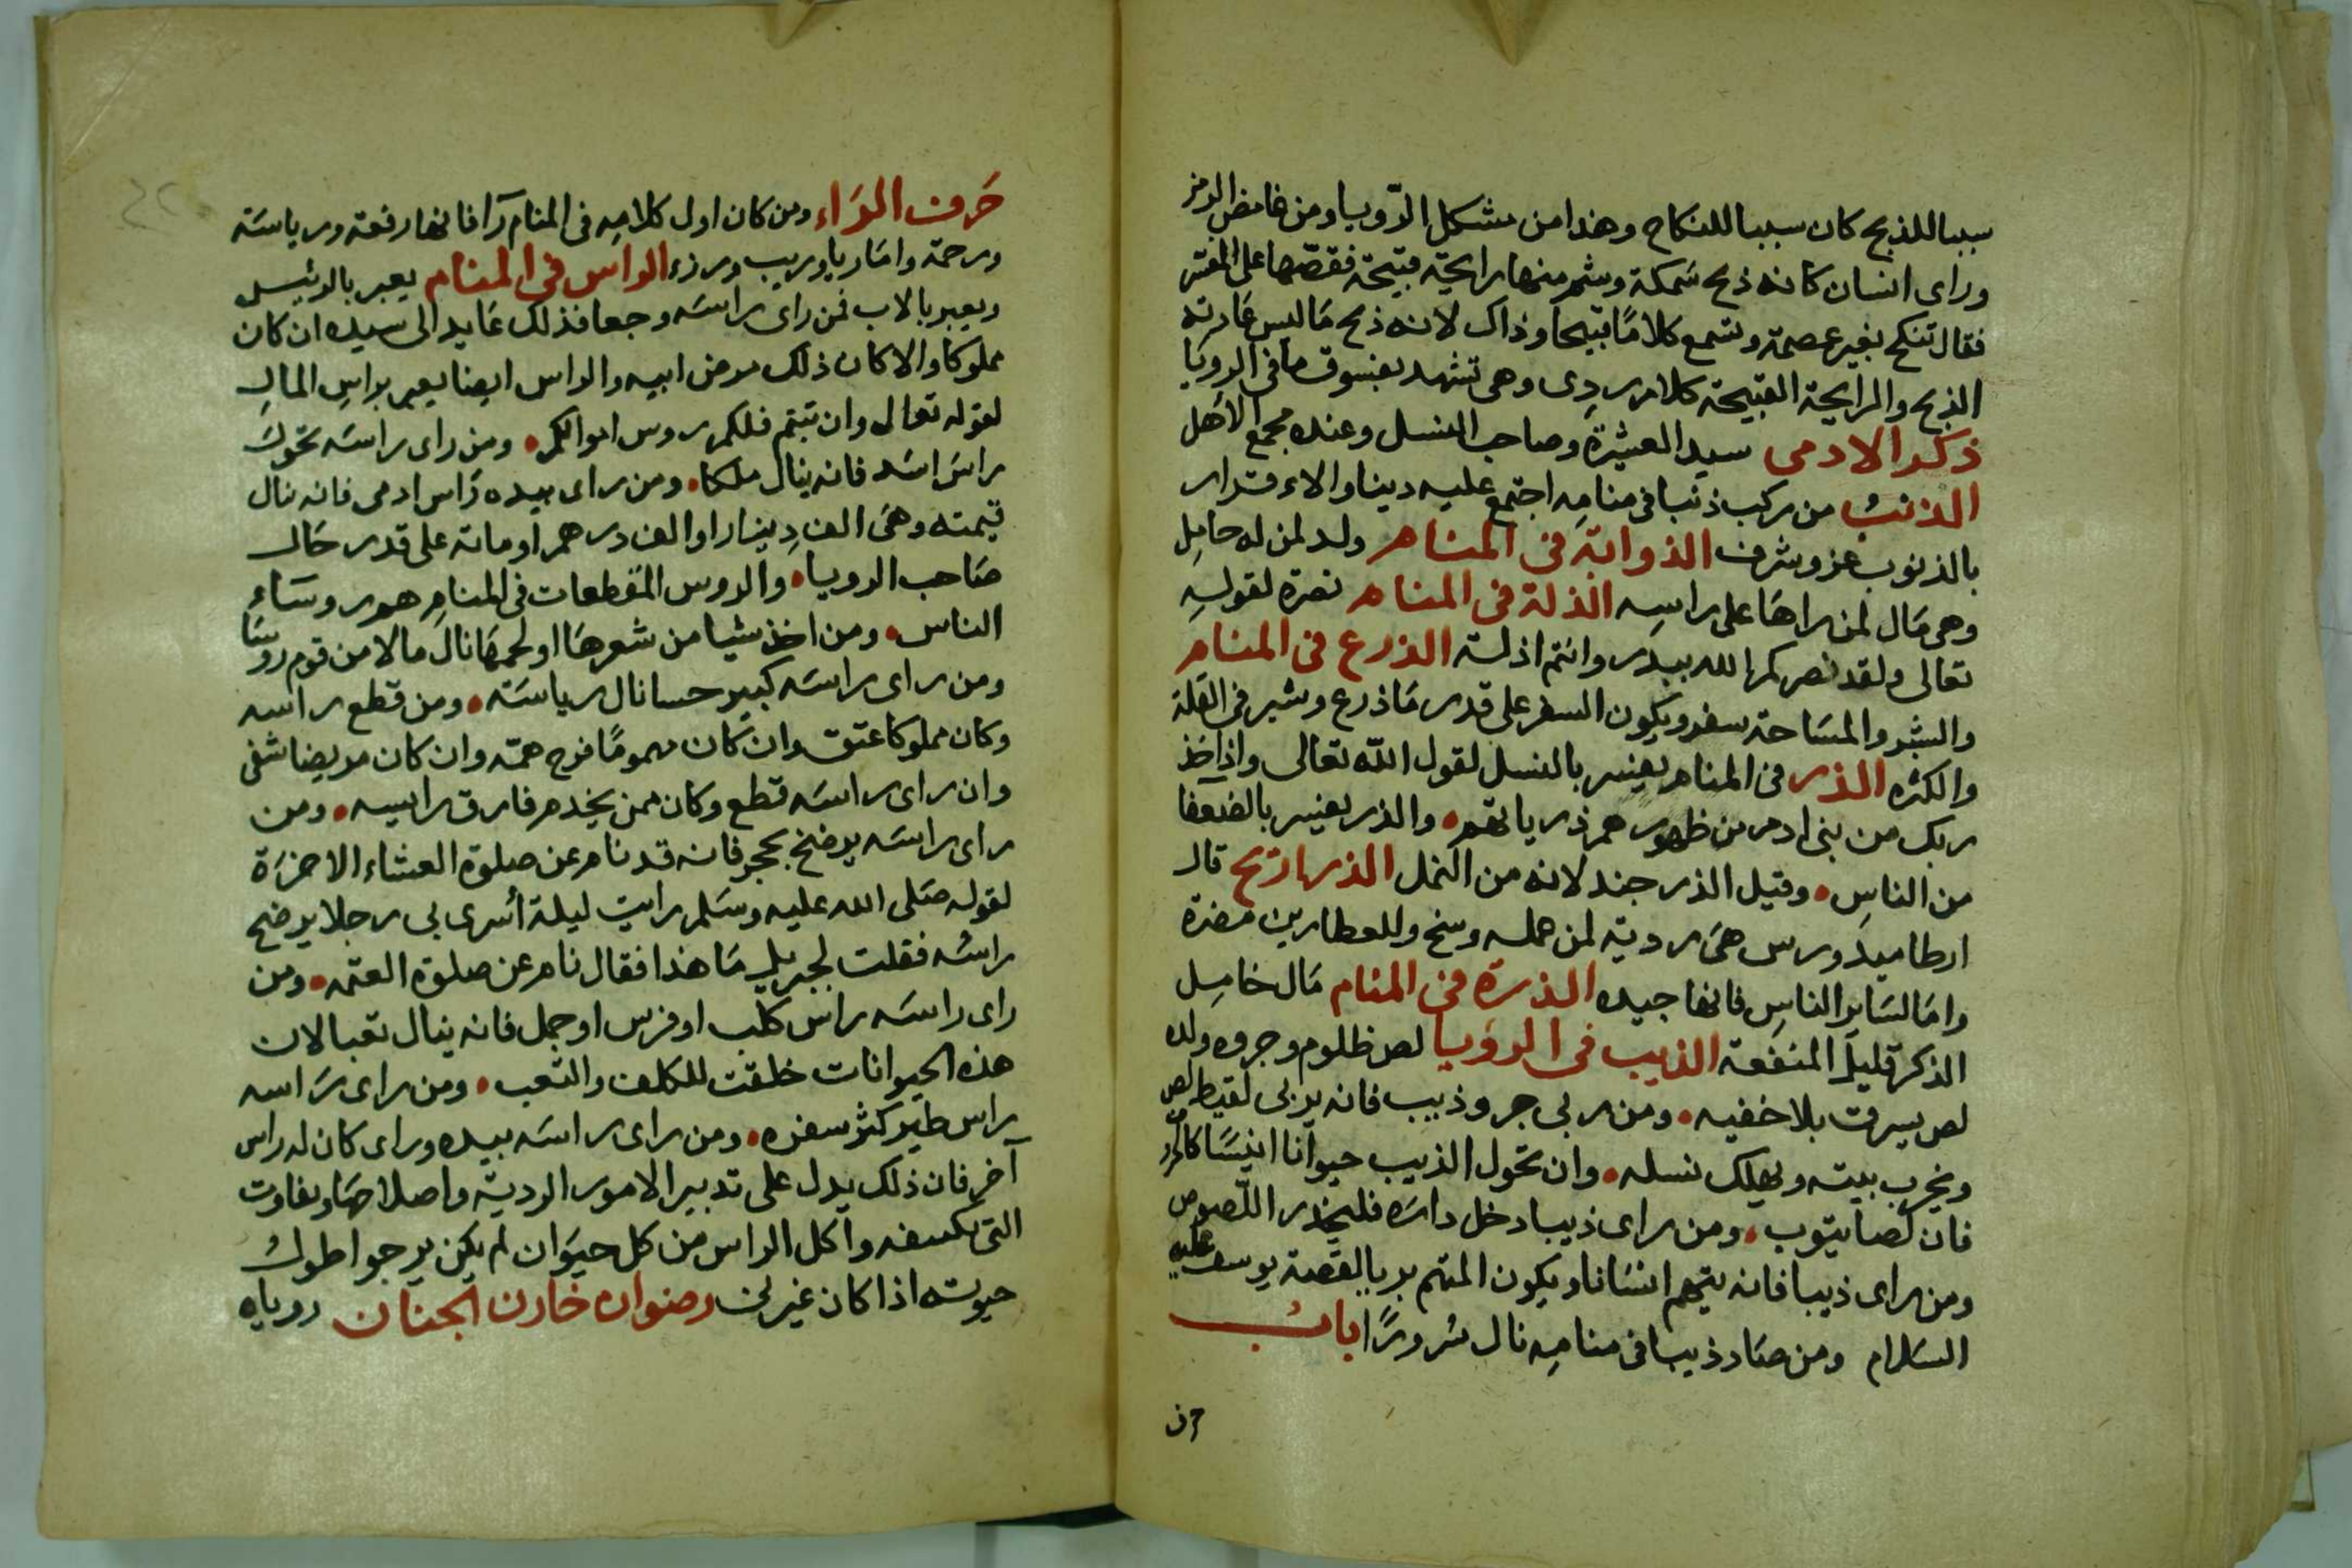 سببا للذبح كان سببا للنكاح وهذا من مشكل الرّويا ومن غامض الرمز
وراى انسان كانه ذبح سَمكة وشم منها رايحَة قبيحة فقصّها على المفسر
فقال تنكح بغير عصمة وتسمع كلامًا قبيحا وذاك لانه ذبح مَا ليس عَادته
الذبح والرايحة القبيحة كلام ردِى وهى تشهد بفسوق ما فى الرويَا
ذكر الادمى سيد العشيرة وصاحب النسل وعنده مجمع الاهل
الذنبُ من ركب ذنبا فى منامِه اجتمع عليه دينا والاء قدار
بالذنوب عز وشرف الذوابَة فى المنام ولد لمن له حامِل
وهى مَال لمن راهَا على راسِه الذلة فى المنام نصرة لقولِه
تعالى ولقد نصركم الله ببدر وانتم اذلة الذرع فى المنام
والشبر والمسَاحة سفر ويكون السفر على قدر مَا ذرع وشبر فى القلة
والكثره الذر فى المنام يفسر بالنسل لقول الله تعالى واذ اخذ
ربك من بنى ادم من ظهورهم ذرياتهم والذر يفسر بالضعفا
من الناسِ وقيل الذر جند لانه من النمل الذراريح قال
ارطاميدورس هىَ رديّة لمن عمله وسخ وللعطارين مضرة
وامَا لسَاير الناسِ فانها جيده الذرة فى المنام مَال خامِل
الذكر قليل المنفعة الذيب فى الرويا لص ظلوم وجروه ولد
لص يسرق بلا خفيه ومن ربى جرو ذيب فانه يربى لقيط لص
ويخرب بيته ويهلك نسله وان تحول الذيب حيوانا انيسًا كالخروف
فان لصا يتوب ومن راى ذيبا دخل داره فليحذر اللّصوص
ومن راى ذيبا فانه يتهم انسَانا ويكون المتهم بريا لقصة يوسف عليه
السَلام ومن صَاد ذيبا فى منامِه نال سُرورًا بابُ
حرف
حَرف الرَاء ومن كان اول كلامِه فى المنام رآ فانها رفعة ورياسَة
ورحمة وامَا ريا وريب ورزء الراس فى المنام يعبر بالرئيس
ويعبر بالاب فمن راى براسَه وجعا فذلك عَايد الى سيده ان كان
مملوكا والا كان ذلك مرض ابيه والراس ايضا يعبر براسِ المالِ
لقوله تعالى وان تبتم فلكم روس اموالكم ومن راى راسَه تحوّلَ
راسَ اسَد فانه ينال ملكا ومن راى بيده رَاس ادمى فانه نال
قيمته وهىَ الف دِينار او الف درهم او مائة على قدر حَال
صَاحب الرويا والروس المقطعات فى المنامِ هم روسَاءِ
الناس ومن اخذ شيا من شعرهَا او لحمهَا نال مالا من قوم روسَا
ومن راى راسَه كبير حسا نال رياسَة ومن قطع راسه
وكان مملوكا عتق وان كان مهمومًا فرج همّه وان كان مريضا شفى
وان راى راسَه قطع وكان ممن يخدم فارق راسيه ومن
راى راسَه يرضخ بحجر فانه قد نام عن صلوة العشاء الاخرَة
لقوله صَلى الله عليه وسَلم رايت ليلة أسرى بى رجلا يرضح
راسُه فقلت لجبريل مَا هذا فقال نام عن صلوة العتمه ومن
راى راسَه راس كلب او فرس او جمل فانه ينال تعبا لان
هذه الحيوانات خلقت للكلف والتعب ومن راى رَاسه
راس طير كثر سفره ومن راى راسَه بيده وراى كان له راس
آخر فان ذلك يدل على تدبير الامور الرديّة واصلاحهَا وبفاوت
التى تكسفه واكل الراس من كل حيَوان لم يكن يرجوا طولُ
حيوته اذا كان غير لحن رضوان خازن الجنان روياه